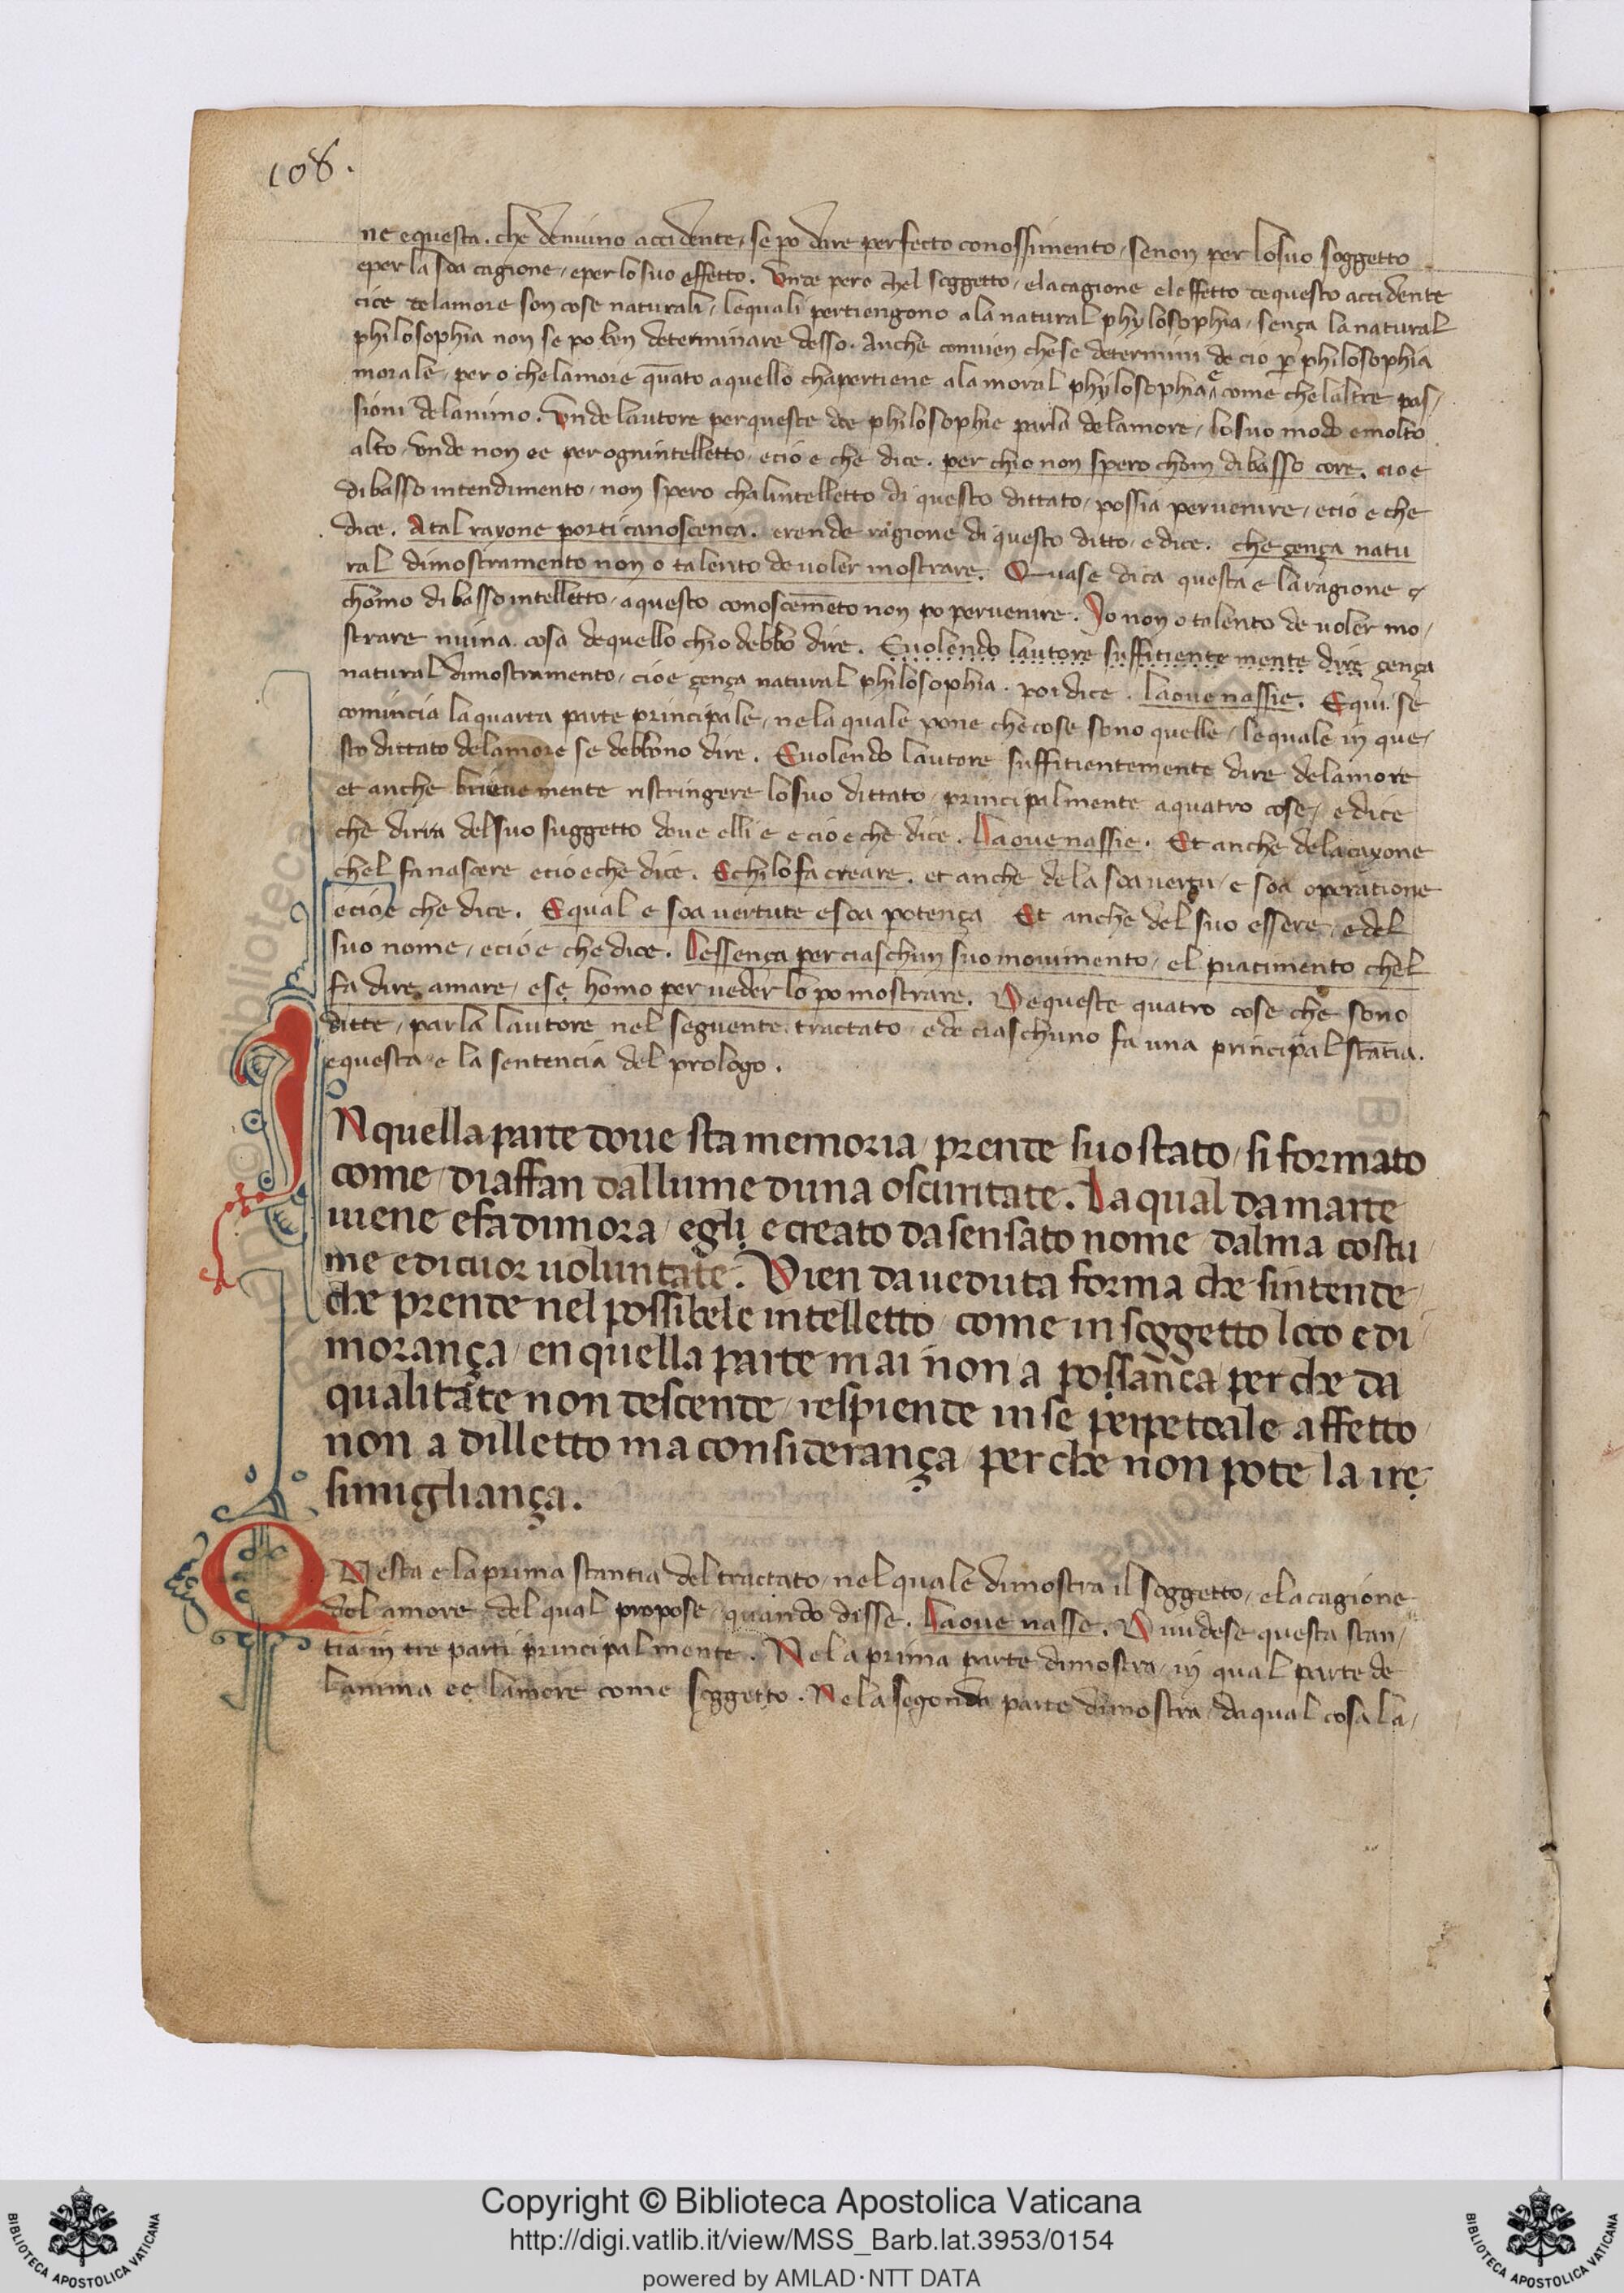 108.
ne e questa. che deniuino accidente, se po dare perfecto conossimento, se non per lo suo soggetto
e per la soa cagione, e per lo suo effetto. Unde pero chel soggetto, e la cagione el effetto de questo accidente
cioe de lamore son cose naturali, le quali pertiengono a la natural phylosophia, sença la natural
philosophia non se po ben determinare desso. Anche conuien che se determini de cio per philosophia
morale, pero che lamore quāto a quello chapertiene a la moral phylosophia, e come che laltre pas,
sioni de lanimo. Unde lautore per queste doe philosophie parla de lamore, lo suo modo e molto
alto, unde non ee per ognintelletto, e cio e che dice. per chio non spero chom di basso core. cio e
di basso intendimento, non spero cha lintelletto di questo dittato, possia peruenire, e cio e che
dice. A tal raxone porti canoscença. e rende ragione di questo ditto, e dice. che çença natu
ral dimostramento non o talento de uoler mostrare. Quase dica questa e la ragione c
homo di basso intelletto, a questo conoscemēto non po peruenire. Io non o talento de uoler mo,
strare niuina cosa de quello chio debbo dire. Euolendo lautore suffitiente mente dire çença
natural dimostramento, cioe çença natural philosophia. poi dice. la oue nassie. E qui se
comincia la quarta parte principale, ne la quale pone che cose sono quelle, le quale in que,
sto dittato de lamore se debbono dire. Euolendo lautore suffitientemente dire de lamore
et anche brieuemente ristringere lo suo dittato, principalmente a quatro cose, e dice
che dirra del suo suggetto doue elli e e cio e che dice. La oue nassie. Et anche de la caxone
chel fa nascere e cio e che dice. E chi lo fa creare. et anche de la soa uertu, e soa operatione
e cio e che dice. E qual e soa uertute e soa potença Et anche del suo essere, e del
suo nome, e cio e che dice. Lessença per ciaschun suo mouimento, el piacimento chel
fa dire amare, e se homo per ueder lo po mostrare. De queste quatro cose che sono
ditte, parla lautore nel seguente tractato, e de ciaschuno fa una principal stātia.
e questa e la sentencia del prologo.
IN quella parte doue sta memoria, prende suo stato, si formato
come, diaffan dal lume duna oscuritate. La qual da marte
uiene e fa dimora, egli e creato da sensato nome dalma costu
me e di cuor uoluntate. Vien da ueduta forma che sintende,
che prende nel possibele intelletto, come in soggetto loco e di
morança, en quella parte mai non a possança per che da
qualitate non descende, resplende in se perpetoale affetto,
non a dilletto ma considerança, per che non pote la ire
simigliança.
QVesta e la prima stantia del tractato, nel quale dimostra il soggetto, e la cagione
del amore, del qual propose, quando disse. La oue nasse. Diuidese questa stan,
tia in tre parti principalmente. Ne la prima parte dimostra, in qual parte de
lanima ee lamore come soggetto. Ne la segonda parte dimostra, da qual cosa la,
Copyright © Biblioteca Apostolica Vaticana
http://digi.vatlib.it/view/MSS_Barb.lat.3953/0154
powered by AMLAD·NTT DATA
BIBLIOTECA APOSTOLICA VATICANA
BIBLIOTECA APOSTOLICA VATICANA